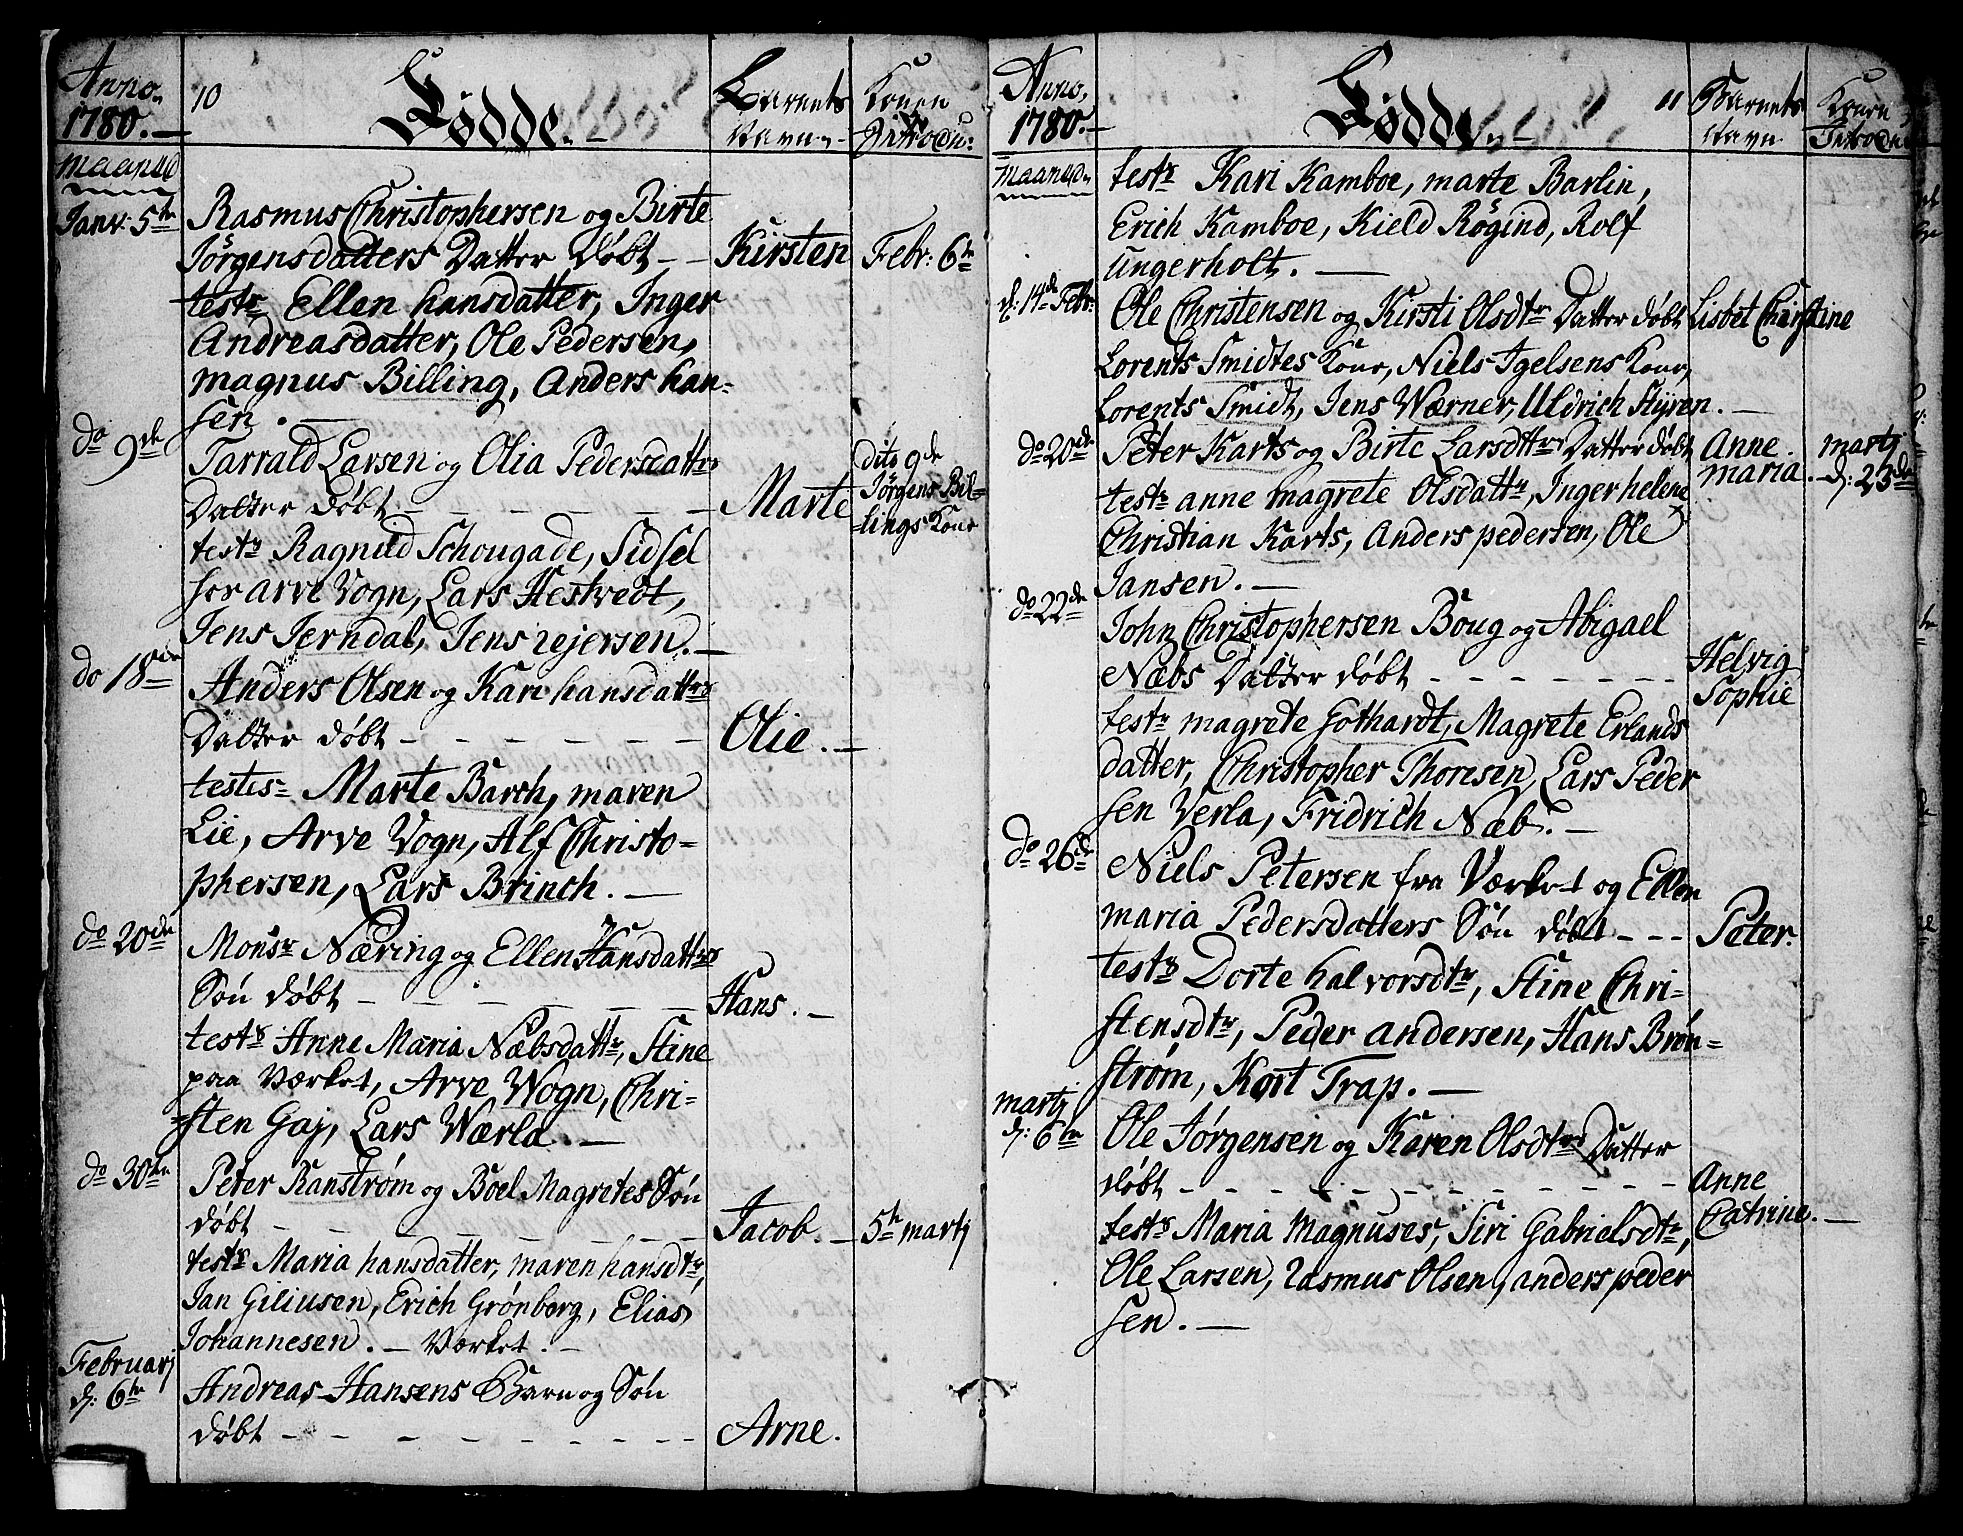 Anno
1780.
10
Fødde.
Barnets
Navn
Konen
Introdu:
Maaned
Janv: 5te
Rasmus Christophersen og Birte
Jörgensdatters Datter døbt - -
Kirsten
Febr: 6te
testr Ellen hansdatter, Inger
Andreasdatter, Ole Pedersen,
magnus Billing, Anders han-
sen.
do 9de
Tarrald Larsen og Olia Pedersdattrs
Datter døbt - - - - - -
Marte
dito 9de
Jørgens Bil-
lings Kone
testr Ragnild Schougade, Sidsel
for arve Vogn, Lars Hestvedt,
Jens Jerndal, Jens rejersen.
do 18de
Anders Olsen og Kari hansdattrs
Datter døbt - - - - - -
Olie.
testis Marte Barth, maren
Lie, Arve Vogn, Alf Christo-
phersen, Lars Brinch.
do 20de
Monsr Næring og Ellen Hansdattrs
Søn døbt - - - - - -
Hans.
testr Anne Maria Næbsdattr, Stine
paa Værket, Arve Wogn, Chri-
sten Gaj, Lars Wærla.
do 30te
Peter Ranstrøm og Boel Magretes Søn
døbt - - - - - - - -
Jacob.
5te martj
testr Maria hansdatter, maren hansdtr,
Jan Giliusen, Erich Grönberg, Elias
Johannesen. - Værket.
Februarj
d: 6te
Andreas Hansens Barn og Søn
døbt - - - - - - - -
Arne.
Anno,
1780.
Fødde.
11
Barnets
Navn
Konen
Introdu
Maaned
testr Kari Kamboe, marte Barlin,
Erich Kamboe, Kield Røgind, Rolf
Ungerholt.
d: 14de Febr:
Ole Christensen og Kirsti Olsdtr Datter døbt
Lisbet Christine
Lorents Smidtes Kone, Niels Igelsens Kone,
Lorents Smidt, Jens Wærner, Uldrich Styren.
do 20de
Peter Karts og Birte Larsdttrs Datter døbt
Anne
maria.
martj
d: 23de
testr anne magrete Olsdattr, Inger helene
Christian Karts, Anders pedersen, Ole
Jansen.
do 22de
John Christophersen Boug og Abigael
Næbs Datter døbt - - - - - -
Helvig
Sophie
testr magrete Gothardt, Magrete Erlands
datter, Christopher Thoresen, Lars Peder
sen Verla, Fridrich Næb.
do 26de
Niels Petersen fra Værket og Ellen
maria Pedersdatters Søn døbt - - -
Peter.
testr Dorte halvorsdtr, Stine Chri-
stensdtr, Peder andersen, Hans Brøn-
strøm, Kort Trap.
martj
d: 6te
Ole Jørgensen og Karen Olsdtrs Datter
døbt - - - - - - - - - -
Anne
Catrine.
testr Maria Magnuses, Siri Gabrielsdtr,
Ole Larsen, rasmus Olsen, anders peder
sen.